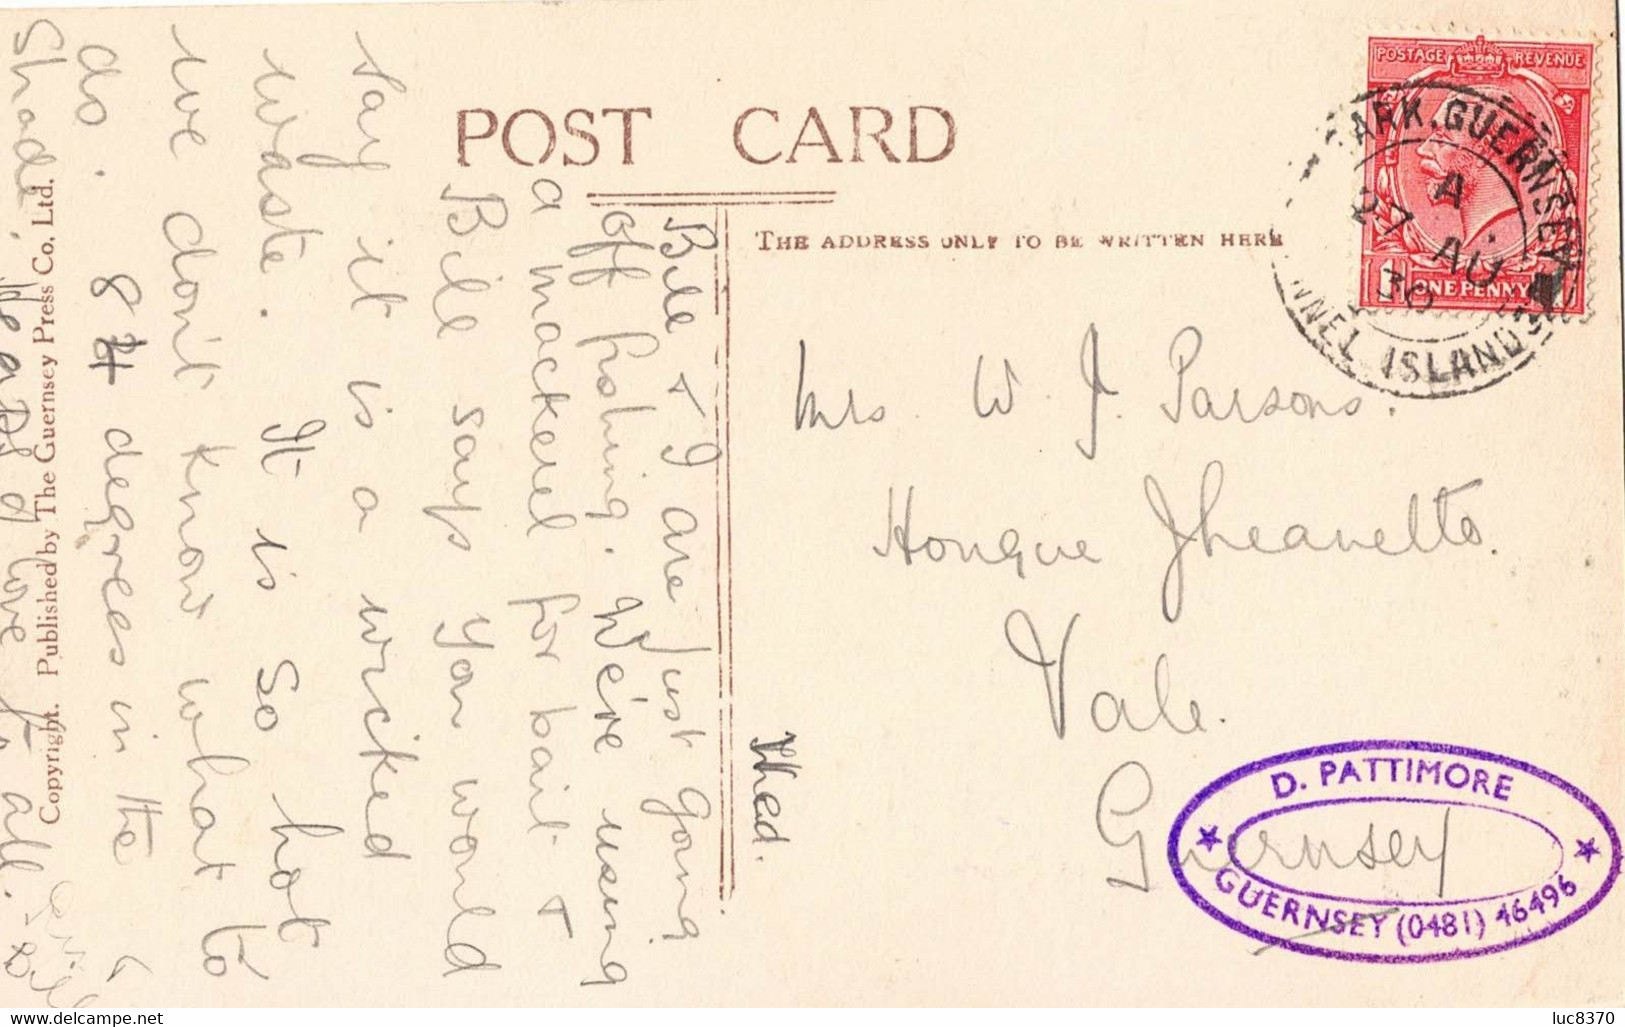 POST CARD
THE ADDRESS ONLY TO BE WRITTEN HERE
POSTAGE REVENUE
ONE PENNY
ARK. GUERNSEY
A
27 AU
30
NNEL ISLANDS
Bill + I are just going
off fishing. We're using
a mackerel for bait +
Bill says you would
say it is a wicked
waste. It is so hot
we don't know what to
do. 84 degrees in the
Shade
Heaps of love to all.
Mrs W. J. Parsons.
Hougue Jheanetto.
Vale.
Guernsey
Wed.
D. PATTIMORE
GUERNSEY (0481) 46496
Copyright. Published by The Guernsey Press Co, Ltd.
delcampe.net
luc8370